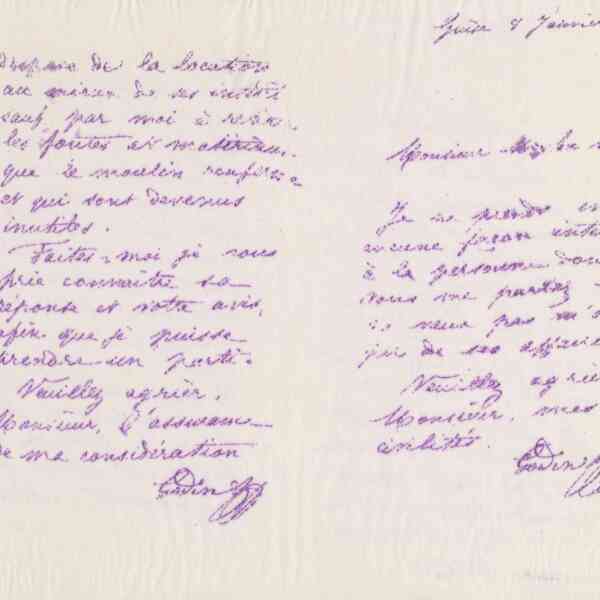 de la location
au mieux de ses intérêts
sauf par moi à retirer
les fontes et matériaux
que le moulin renferme
et qui sont devenus
inutiles.
Faites-moi je vous
prie connaître sa
réponse et votre avis,
afin que je puisse
prendre un parti.
Veuillez agréer,
Monsieur, l'assurance
de ma considération
Godin
Guise 8 Janvier
Monsieur
Je ne prends en
aucune façon
à la personne dont
vous me parlez
je ne veux pas
de ses affaires
Veuillez agréer
Monsieur, mes
civilités.
Godin